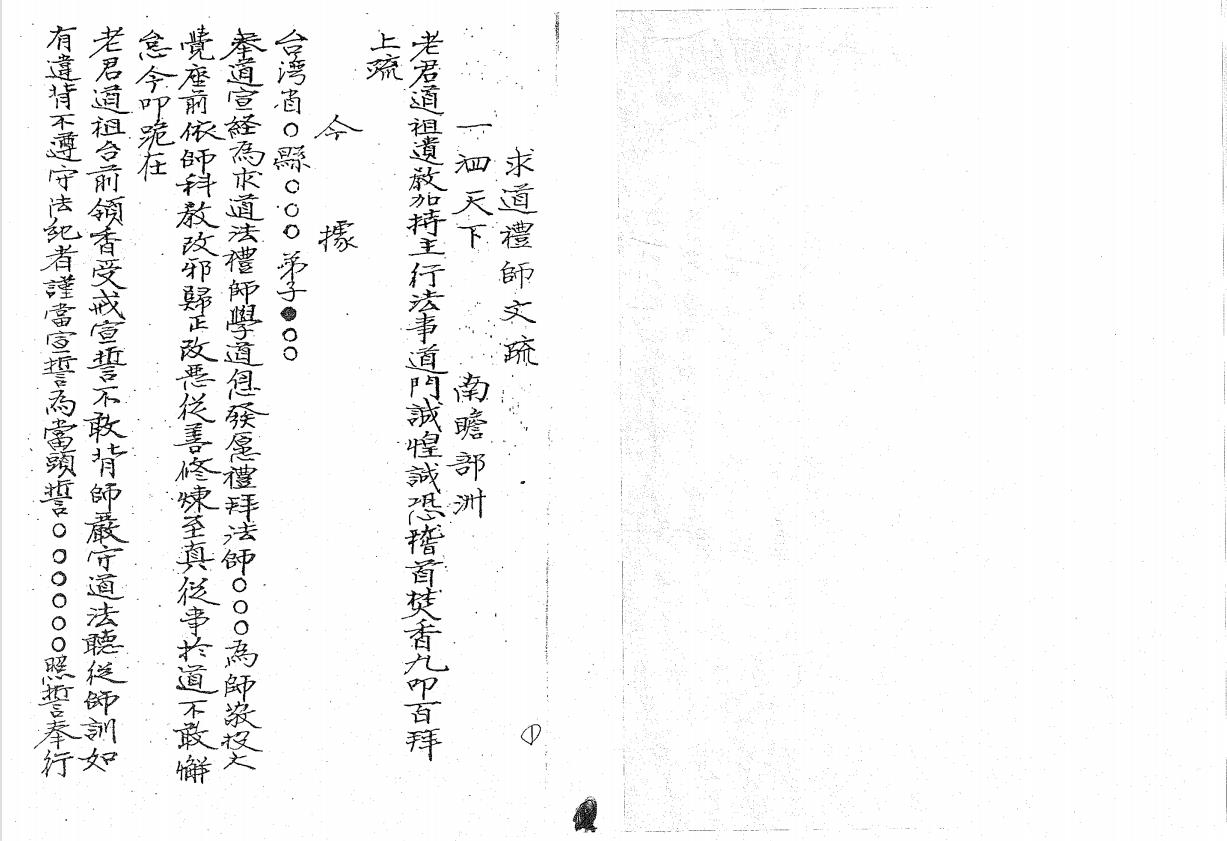 求道禮師文疏
一泗天下 南瞻部洲
老君道祖遺教加持主行法事道門誠惶誠恐稽首焚香九叩百拜
上疏
今 據
台湾省○縣○○○弟子●○○
奉道宣経為求道法禮師學道俱發愿禮拜法師○○○為師敬投大
覺座前依師科教改邪歸正改悪從善修煉至真從事於道不敢懈
怠今叩跪在
老君道祖台前領香受戒宣誓不敢背師嚴守道法聽從師訓如
有違背不遵守法紀者謹當宣誓為當頭誓○○○○○○照誓奉行
①